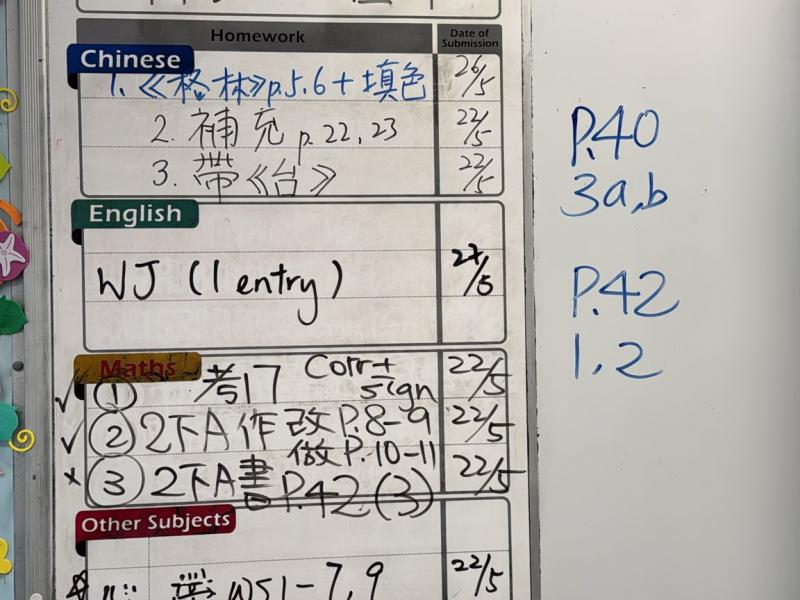 Homework
Date of Submission
Chinese
1. 《格林》p.5,6 + 填色 26/5
2. 補充 p.22,23 22/5
3. 帶《台》 22/5
English
WJ (1 entry) 27/5
Maths
✓ ① 考17 Corr + sign 22/5
✓ ② 2下A作 改P.8-9 22/5
做P.10-11
x ③ 2下A書 P.42 (3) 22/5
Other Subjects
WS1-7,9 22/5
P.40
3a,b
P.42
1,2